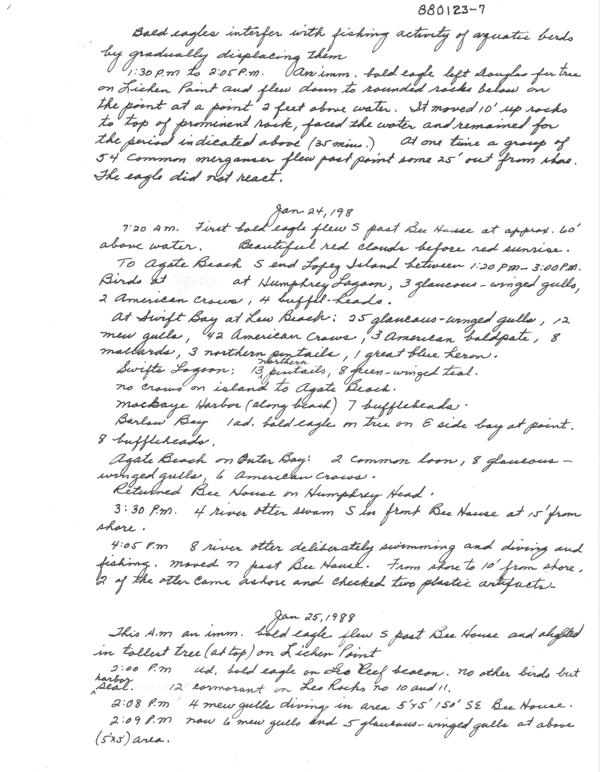 880123-7
Bald eagles interfer with fishing activity of aquatic birds
by gradually displacing them
1:30 P.M to 2:05 P.M. An imm. bald eagle left douglas fir tree
on Lichen Point and flew down to rounded rocks below on
the point at a point 2 feet above water. It moved 10' up rocks
to top of prominent rock, faced the water and remained for
the period indicated above (35 mins.) At one time a group of
54 common merganser flew past point some 25' out from shoe.
The eagle did not react.
Jan 24, 198
7:20 AM. First bald eagle flew S past Bee House at approx. 60'
above water. Beautiful red clouds before red sunrise.
To Agate Beach S end Lopez Island between 1:20 PM – 3:00 P.M.
Birds at at Humphrey Lagoon, 3 glaucous-winged gulls,
2 American Crows, 4 buffel-heads.
At Swift Bay at Low Beach: 25 glaucous-winged gulls, 12
mew gulls, 42 American Crows, 3 American baldpate, 8
mallards, 3 northern pintails, 1 great blue heron.
Swifts Lagoon: 13 northern pintails, 8 green-winged teal.
no crows on island to Agate Beach.
Mackaye Harbor (along beach) 7 buffleheads.
Barlow Bay 1 ad. bald eagle on tree on E side bay at point.
8 buffleheads.
Agate Beach on Outer Bay: 2 common loon, 8 glaucous-
winged gulls, 6 American Crows.
Returned Bee House on Humphrey Head.
3:30 P.M. 4 river otter swam S in front Bee House at 15' from
shore.
4:05 P.M 8 river otter deliberately swimming and diving and
fishing. moved N past Bee House. From shore to 10' from shore.
2 of the otter came ashore and checked two plastic artifacts.
Jan 25, 1988
This A.M an imm. bald eagle flew S past Bee House and alighted
in tallest tree (at top) on Lichen Point
2:00 P.M ad. bald eagle on Leo Reef beacon. no other birds but
harbor seal. 12 cormorant on Leo Rocks no 10 and 11.
2:08 P.M 4 mew gulls diving in area 5'x5' 150' SE Bee House.
2:09 P.M now 6 mew gulls and 5 glaucous-winged gulls at above
(5'x5') area.